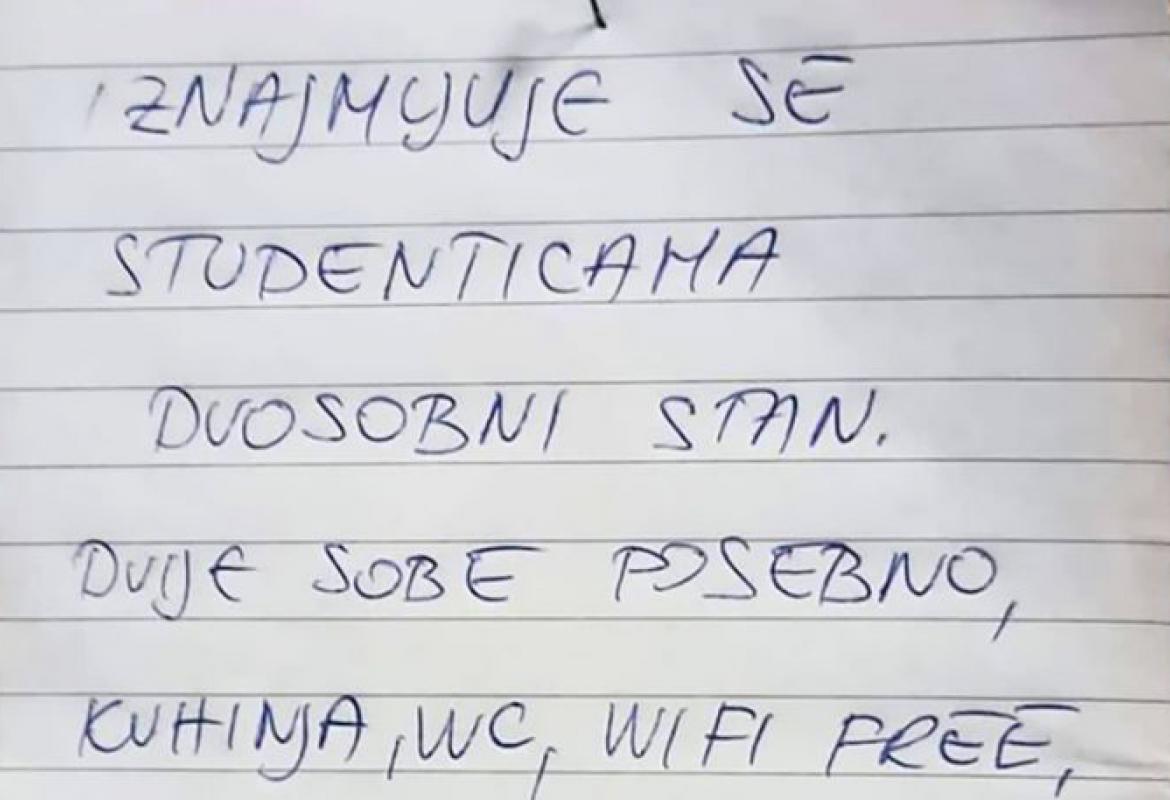 IZNAJMUJUJE SE
STUDENTICAMA
DVOSOBNI STAN.
DVIJE SOBE POSEBNO,
KUHINJA, WC, WIFI FREE,